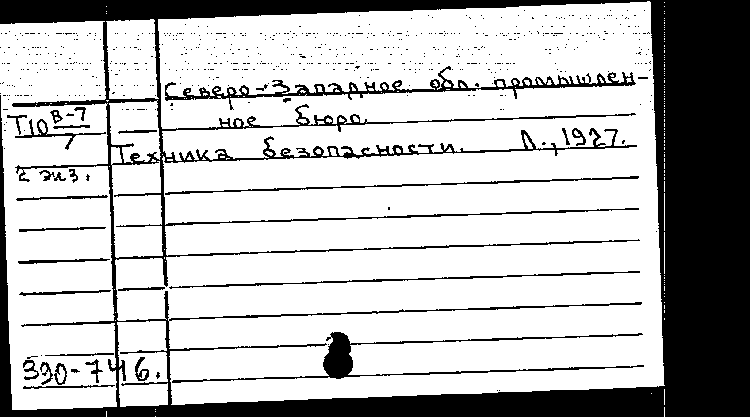 Северо-Западное обл. промышлен-
ное бюро.
Т10 В-7/7
Техника безопасности. Л., 1927.
2 экз.
390-746.